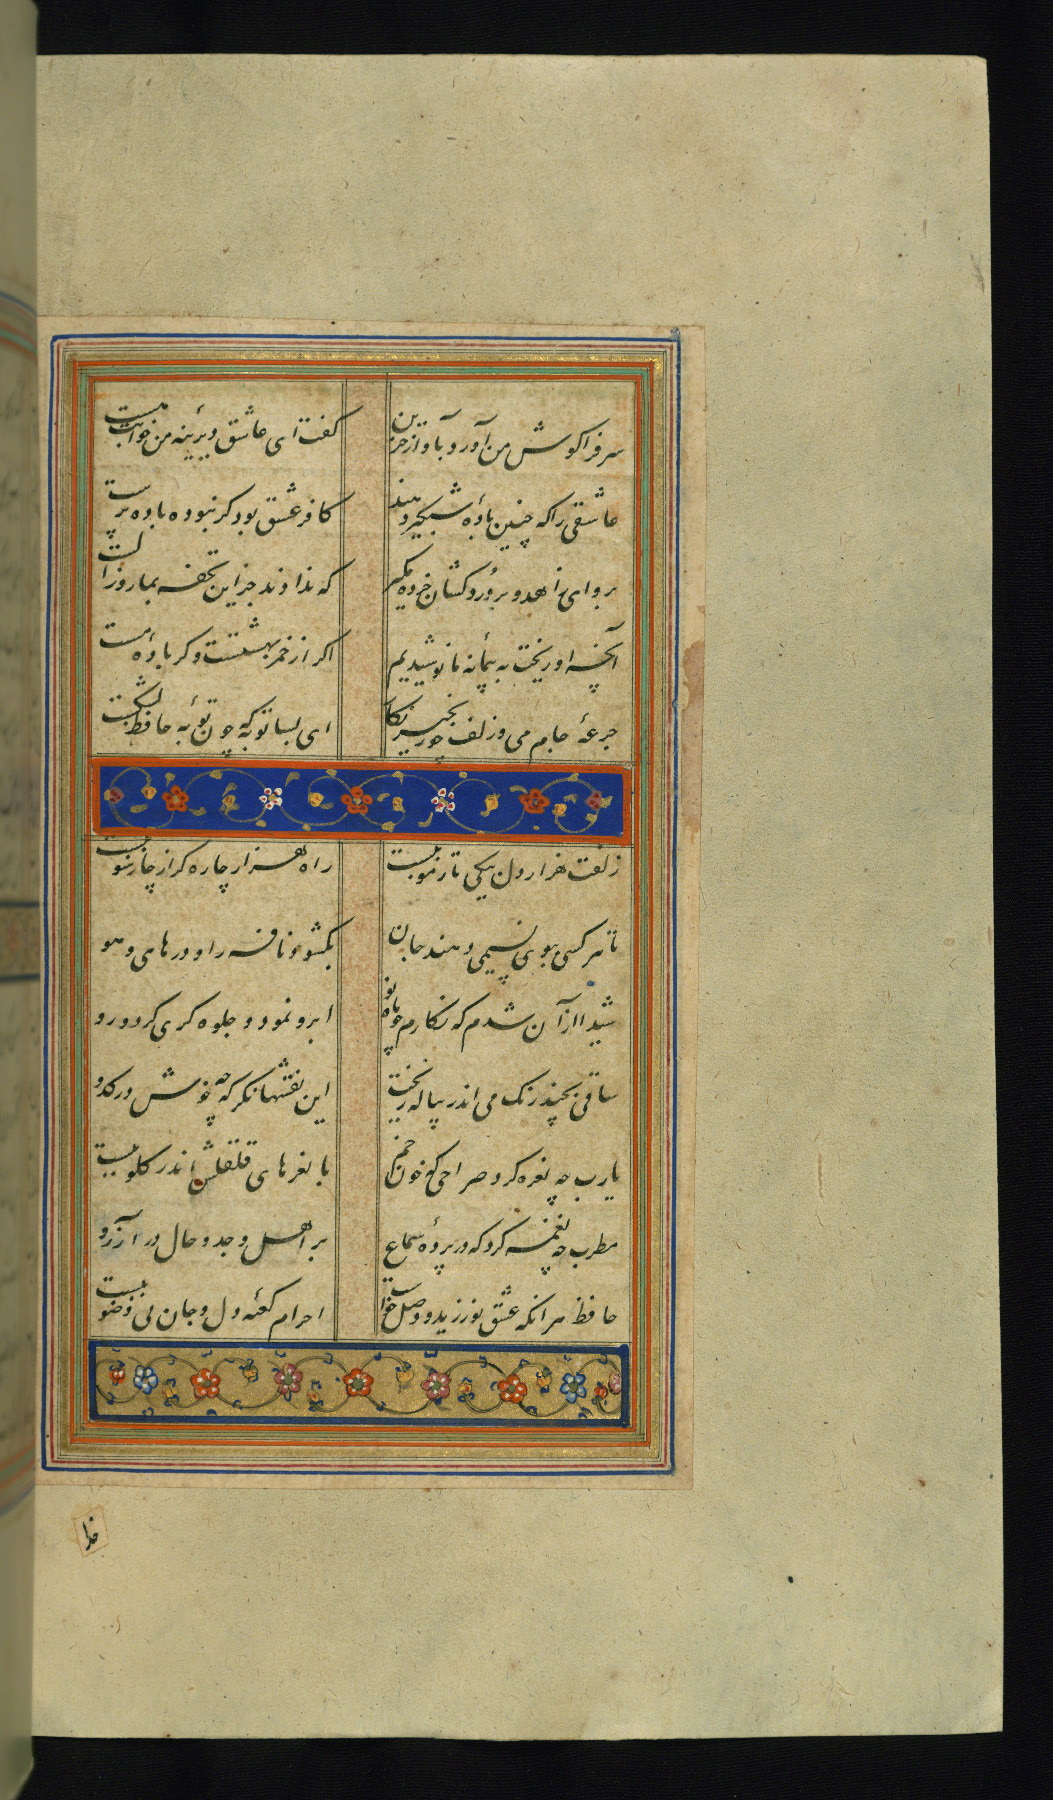 سر فرا گوش من آورد و بآواز حزین گفت ای عاشق دیرینه من خوابت هست
عاشقی را که چنین بادهٔ شبگیر دهند کافر عشق بود گر نبود باده پرست
برو ای زاهد و بر دردکشان خرده مگیر که ندادند جز این تحفه بما روز الست
آنچه او ریخت به پیمانه ما نوشیدیم اگر از خمر بهشتست و گر بادهٔ مست
جرعهٔ جام می و زلف چو زنجیر نگار ای بسا توبه که چون توبهٔ حافظ بشکست
زلفت هزار دل بیکی تار مو ببست راه هزار چاره گر از چار سو ببست
تا هر کسی ببوی نسیمی دهند جان بگشود نافه را و در های و هو
شیدا از آن شدم که نگارم چو ماه نو ابرو نمود و جلوه گری کرد و رو
ساقی بچند رنگ می اندر پیاله ریخت این نقشها نگر که چه خوش در کدو
یارب چه نغمه کرد صراحی که خون خم با نغرهای قلقلش اندر گلو ببست
مطرب چه نغمه کرد که در پردهٔ سماع بر اهل وجد و حال در آرزو
حافظ هر انکه عشق نورزید و وصل خواست احرام کعبهٔ دل و جان بی وضو ببست
خدا